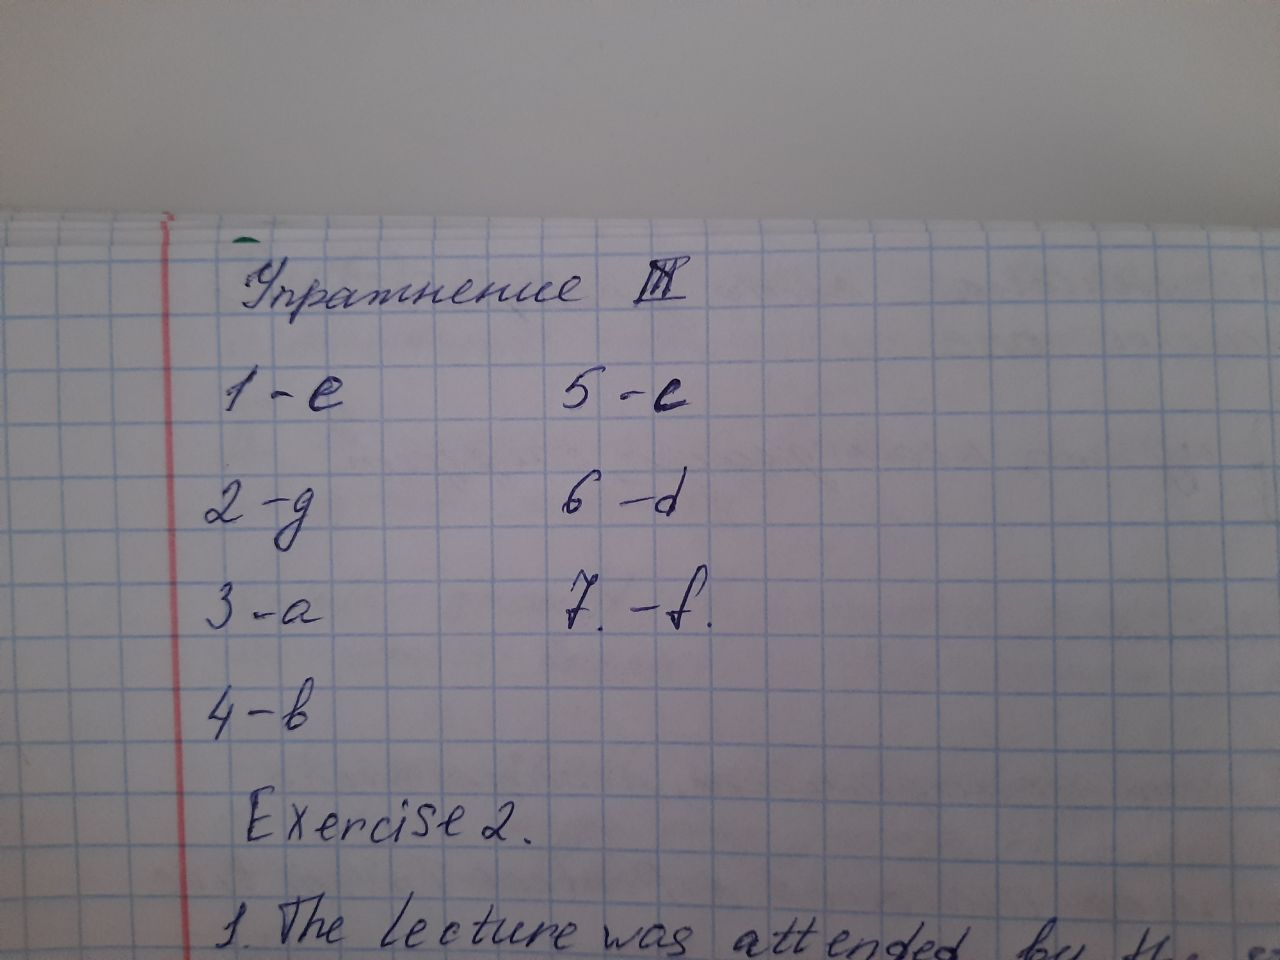 Упражнение III
1 - e 5 - c
2 - g 6 - d
3 - a 7. - f.
4 - b
Exercise 2.
1. The lecture was attended by